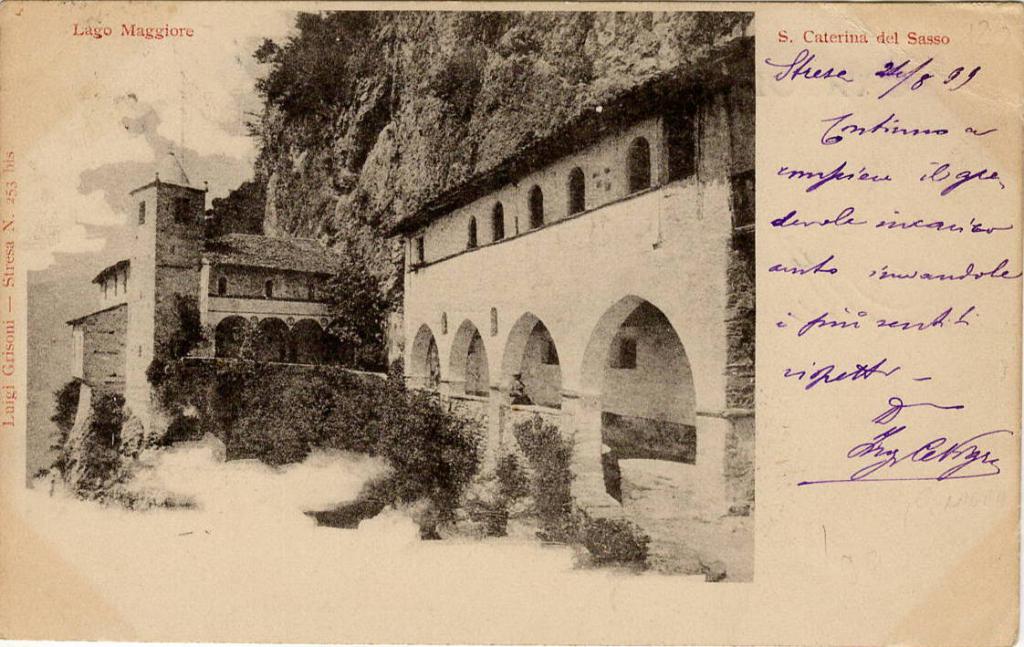 Lago Maggiore
S. Caterina del Sasso
Luigi Grisoni — Stresa N. 253 bis
Stresa 24/8 99
Continuo a
compiere il gra-
devole incarico
inviandole
i più sentiti
rispetti —